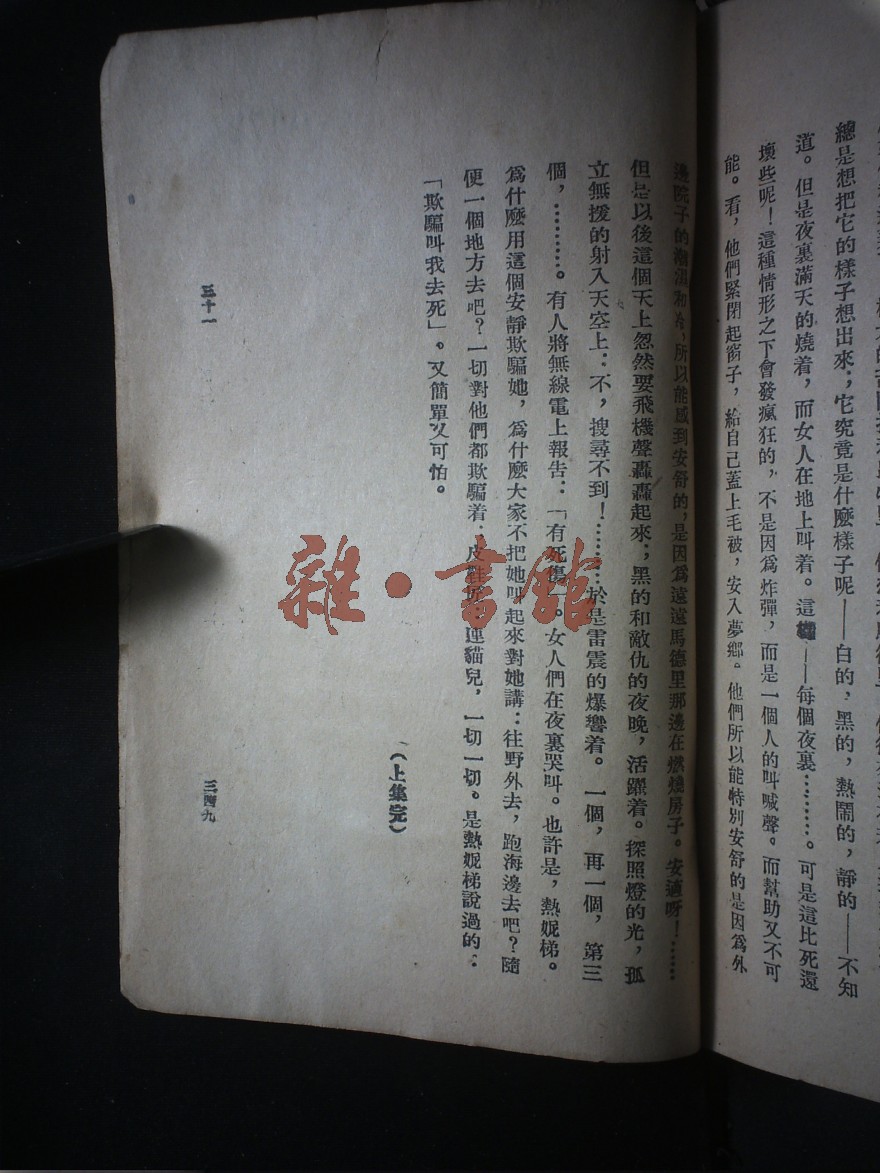 總是想把它的樣子想出來;它究竟是什麼樣子呢——白的,黑的,熱鬧的,靜的——不知
道。但是夜裏滿天的燒着,而女人在地上叫着。這——每個夜裏…………。可是這比死還
壞些呢!這種情形之下會發瘋狂的,不是因爲炸彈,而是一個人的叫喊聲。而幫助又不可
能。看,他們緊閉起窗子,給自己蓋上毛被,安入夢鄉。他們所以能特別安舒的是因爲外
邊院子的潮溼和冷,所以能感到安舒的,是因爲遠遠馬德里那邊在燃燒房子。安適呀!……
但是以後這個天上忽然要飛機聲轟轟起來;黑的和敵仇的夜晚,活躍着。探照燈的光,孤
立無援的射入天空上:不,搜尋不到!…………於是雷震的爆響着。一個,再一個,第三
個,…………。有人將無線電上報告:「有死傷」。女人們在夜裏哭叫。也許是,熱妮梯。
爲什麼用這個安靜欺騙她,爲什麼大家不把她叫起來對她講:往野外去,跑海邊去吧?隨
便一個地方去吧?一切對他們都欺騙着:皮鞋匠,連貓兒,一切一切。是熱妮梯說過的:
「欺騙叫我去死」。又簡單又可怕。
(上集完)
三十一
三四九
雜·書館